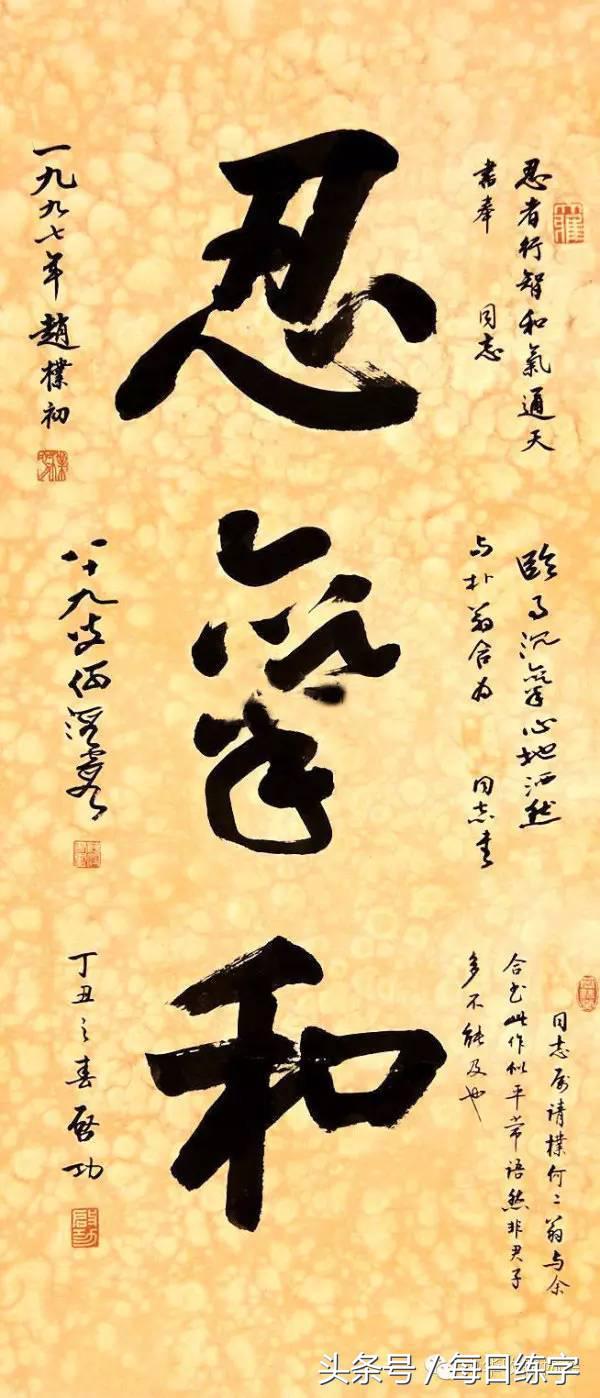 忍者行智和氣通天
書奉 同志
忍
一九九七年 趙樸初
臨事沉氣心地洒然
与朴翁合为 同志書
氣
八十九叟何海霞
同志属请樸何二翁与余
合书此作似平常语然非君子
多不能及也
和
丁丑之春 启功
啟功
头条号 / 每日练字